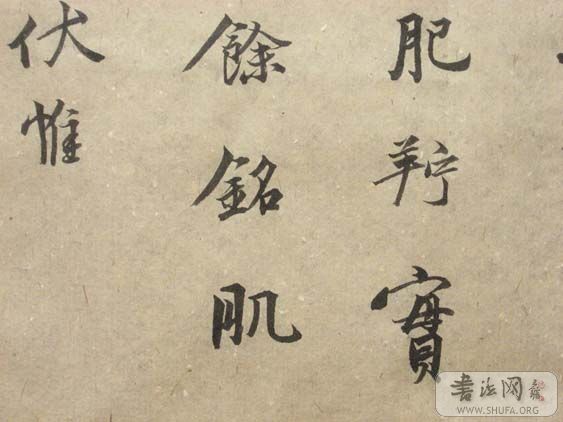 肥羜實
餘銘肌
伏惟
書法网
WWW.SHUFA.ORG